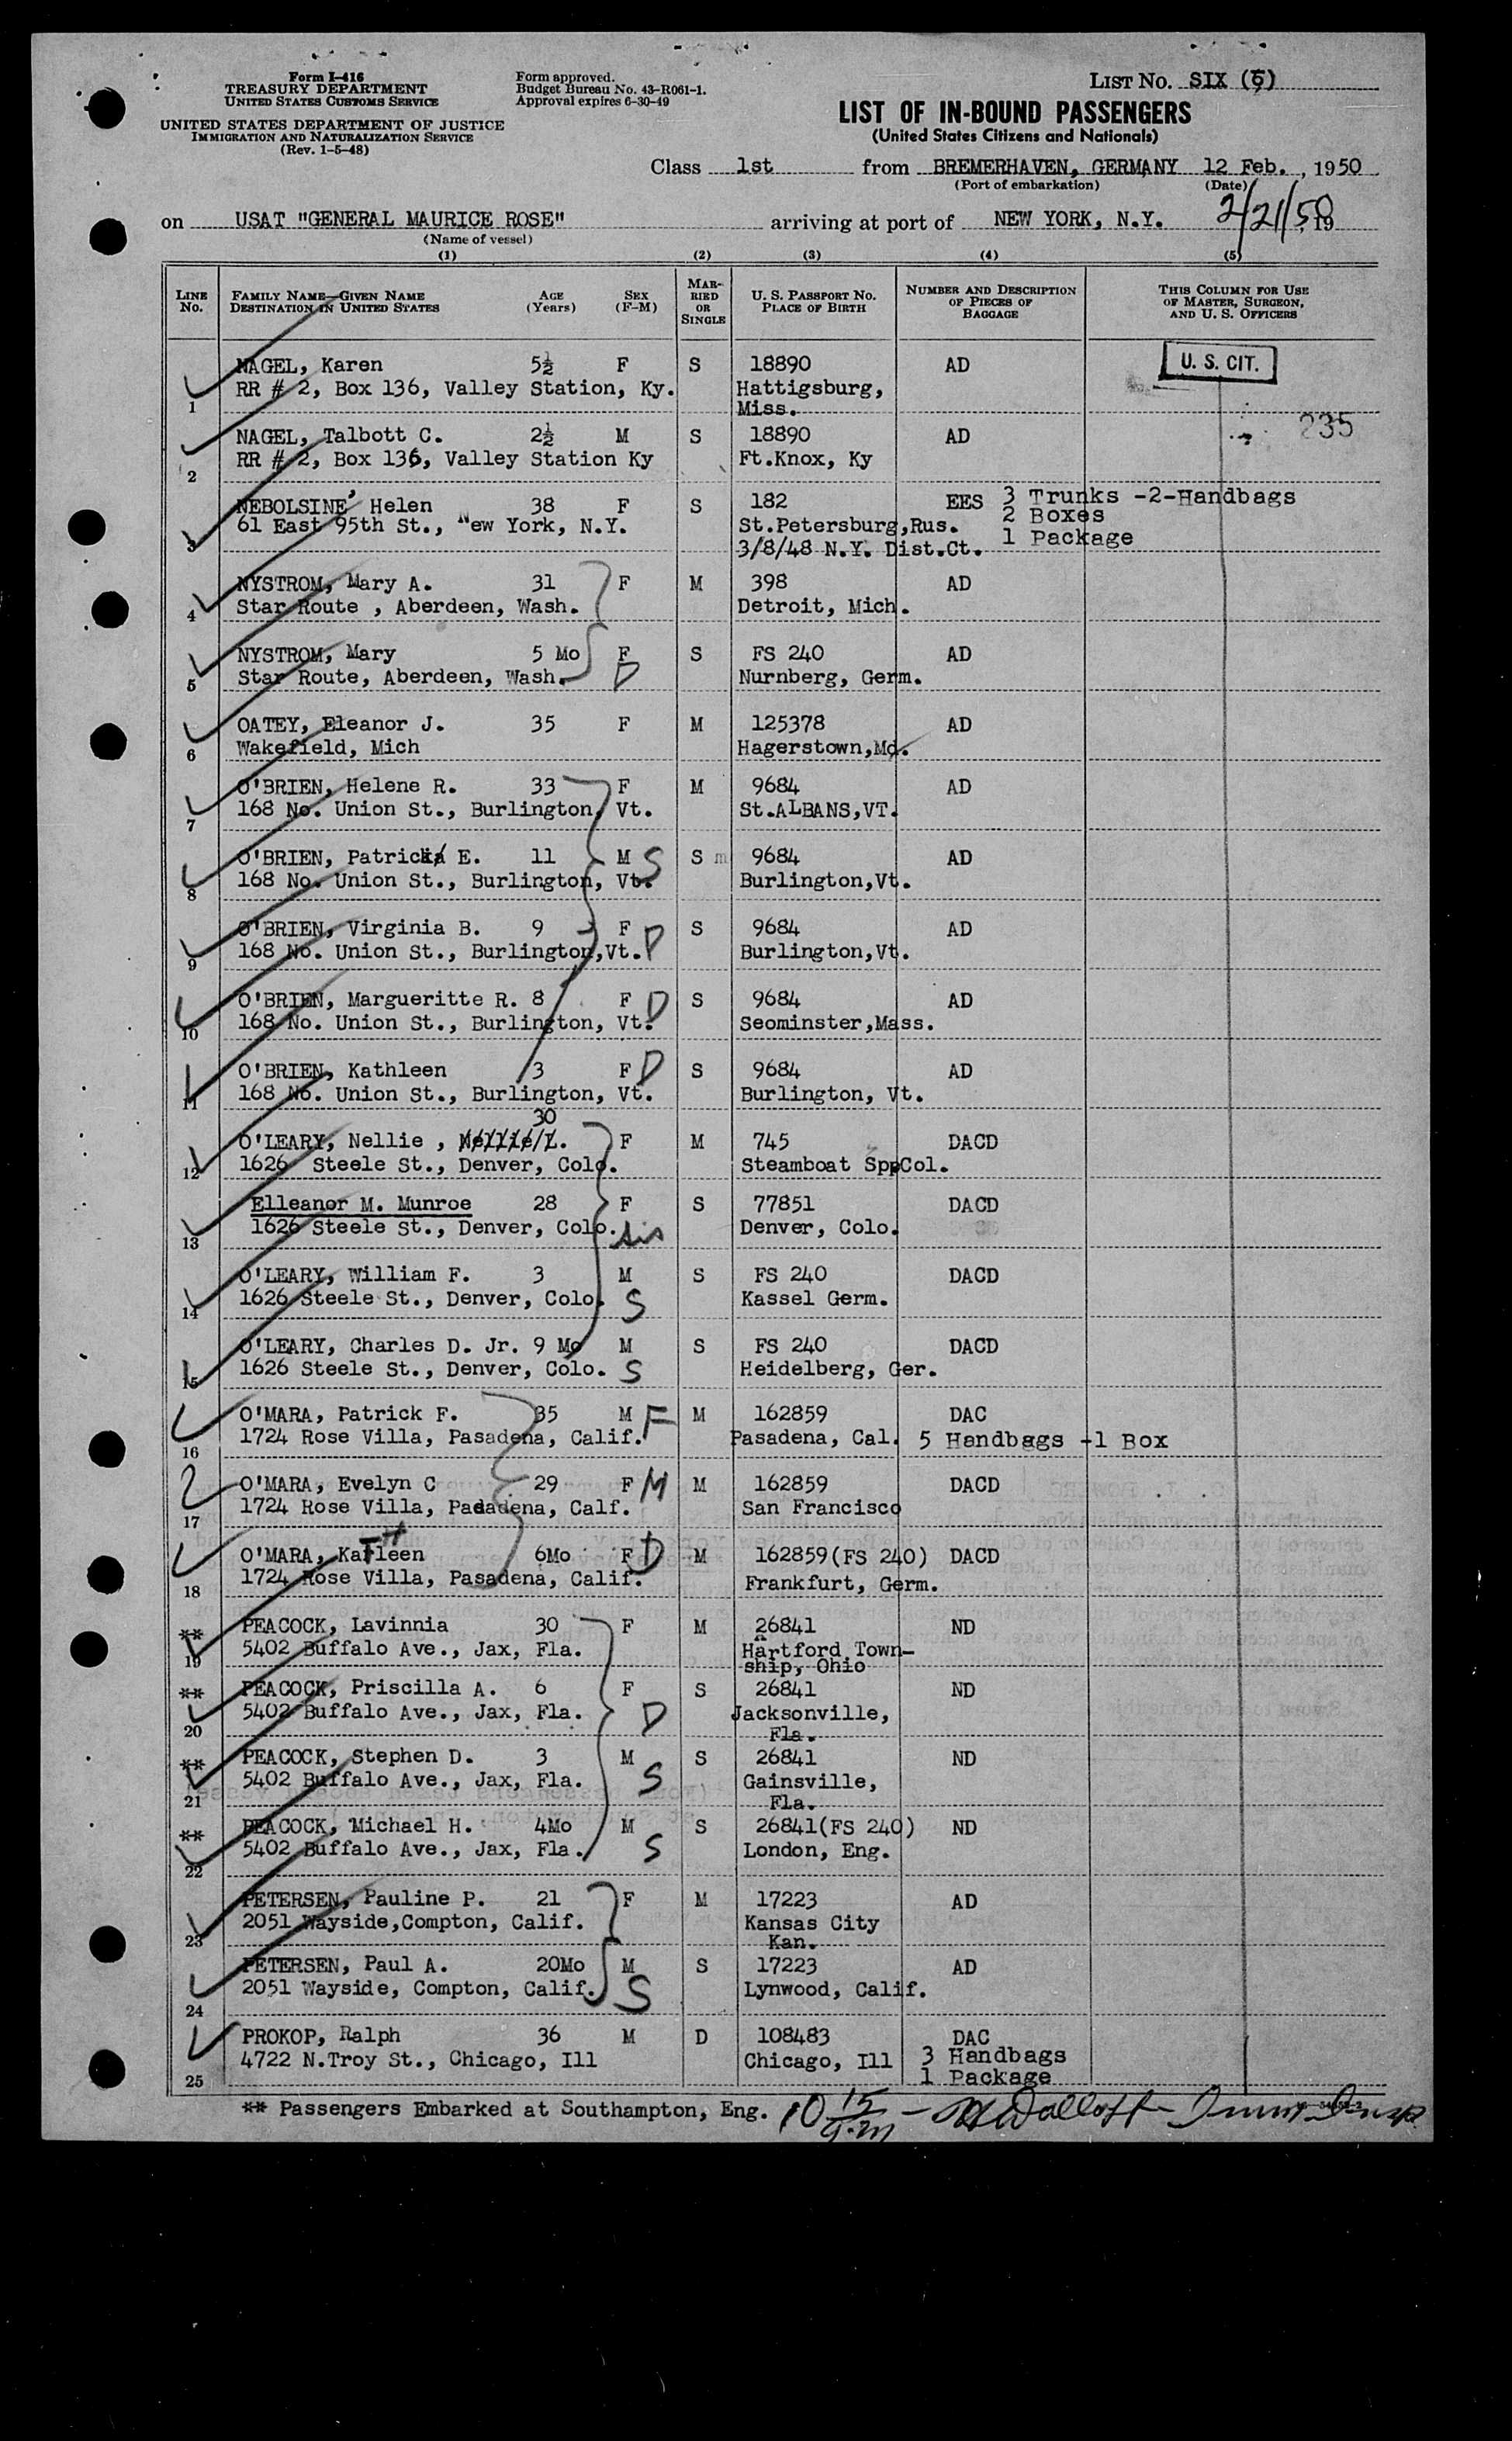 Form I-416
TREASURY DEPARTMENT
UNITED STATES CUSTOMS SERVICE
UNITED STATES DEPARTMENT OF JUSTICE
IMMIGRATION AND NATURALIZATION SERVICE
(Rev. 1-5-48)
Form approved.
Budget Bureau No. 43-R061-1.
Approval expires 6-30-49
LIST No. SIX (6)
LIST OF IN-BOUND PASSENGERS
(United States Citizens and Nationals)
Class 1st from BREMERHAVEN, GERMANY 12 Feb., 1950
(Port of embarkation) (Date)
on USAT "GENERAL MAURICE ROSE" arriving at port of NEW YORK, N.Y. 2/21/50, 19
(Name of vessel)
(1) (2) (3) (4) (5)
LINE No. FAMILY NAME—GIVEN NAME DESTINATION IN UNITED STATES AGE (Years) SEX (F-M) MARRIED OR SINGLE U. S. PASSPORT No. PLACE OF BIRTH NUMBER AND DESCRIPTION OF PIECES OF BAGGAGE THIS COLUMN FOR USE OF MASTER, SURGEON, AND U. S. OFFICERS
NAGEL, Karen 5½ F S 18890 AD U. S. CIT.
1 RR # 2, Box 136, Valley Station, Ky. Hattigsburg,
Miss.
235
NAGEL, Talbott C. 2½ M S 18890 AD
2 RR # 2, Box 136, Valley Station Ky Ft.Knox, Ky
NEBOLSINE' Helen 38 F S 182 EES 3 Trunks -2-Handbags
3 61 East 95th St., New York, N.Y. St.Petersburg,Rus. 2 Boxes
3/8/48 N.Y. Dist.Ct. 1 Package
NYSTROM, Mary A. 31 F M 398 AD
4 Star Route , Aberdeen, Wash. Detroit, Mich.
NYSTROM, Mary 5 Mo F S FS 240 AD
5 Star Route, Aberdeen, Wash. D Nurnberg, Germ.
OATEY, Eleanor J. 35 F M 125378 AD
6 Wakefield, Mich Hagerstown,Md.
O'BRIEN, Helene R. 33 F M 9684 AD
7 168 No. Union St., Burlington, Vt. St.ALBANS,VT.
O'BRIEN, Patrick E. 11 M S S m 9684 AD
8 168 No. Union St., Burlington, Vt. Burlington,Vt.
O'BRIEN, Virginia B. 9 F D S 9684 AD
9 168 No. Union St., Burlington,Vt. Burlington,Vt.
O'BRIEN, Margueritte R. 8 F D S 9684 AD
10 168 No. Union St., Burlington, Vt. Seominster,Mass.
O'BRIEN, Kathleen 3 F D S 9684 AD
11 168 No. Union St., Burlington, Vt. Burlington, Vt.
30
O'LEARY, Nellie , Nellie/L. F M 745 DACD
12 1626 Steele St., Denver, Colo. Steamboat Spp Col.
Elleanor M. Munroe 28 F S 77851 DACD
13 1626 Steele St., Denver, Colo. sis Denver, Colo.
O'LEARY, William F. 3 M S FS 240 DACD
14 1626 Steele St., Denver, Colo. S Kassel Germ.
O'LEARY, Charles D. Jr. 9 Mo M S FS 240 DACD
15 1626 Steele St., Denver, Colo. S Heidelberg, Ger.
O'MARA, Patrick F. 35 M F M 162859 DAC
16 1724 Rose Villa, Pasadena, Calif. Pasadena, Cal. 5 Handbags -1 Box
O'MARA, Evelyn C 29 F M M 162859 DACD
17 1724 Rose Villa, Padadena, Calf. San Francisco
TH
O'MARA, Katleen 6Mo F D M 162859(FS 240) DACD
18 1724 Rose Villa, Pasadena, Calif. Frankfurt, Germ.
** PEACOCK, Lavinnia 30 F M 26841 ND
19 5402 Buffalo Ave., Jax, Fla. Hartford Town-
ship, Ohio
** PEACOCK, Priscilla A. 6 F S 26841 ND
20 5402 Buffalo Ave., Jax, Fla. D Jacksonville,
Fla.
** PEACOCK, Stephen D. 3 M S 26841 ND
21 5402 Buffalo Ave., Jax, Fla. S Gainsville,
Fla.
** PEACOCK, Michael H. 4Mo M S 26841(FS 240) ND
22 5402 Buffalo Ave., Jax, Fla. S London, Eng.
PETERSEN, Pauline P. 21 F M 17223 AD
23 2051 Wayside,Compton, Calif. Kansas City
Kan.
PETERSEN, Paul A. 20Mo M S 17223 AD
24 2051 Wayside, Compton, Calif. S Lynwood, Calif.
PROKOP, Ralph 36 M D 108483 DAC
25 4722 N.Troy St., Chicago, Ill Chicago, Ill 3 Handbags
1 Package
** Passengers Embarked at Southampton, Eng. 10 15 a.m —